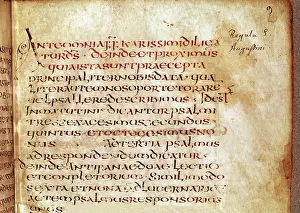 2
Regula S.
Augustini
ANTEOMNIAFF KARISSIMIDILIGA
TURDS DEINDEETPROXIMUS
QUIAISTASUNTPRAECEPTA
PRINCIPALITERNOBISDATA QUA
LITERAUTEMNOSOPORTETORARE
UELPSALLEREDESCRIBIMUS IDEST
INMATUTINIS DICANTURPSALMI
TRES SECUNDUS
QUINTUS ETOCTOGESIMUSNO
NUS ADTERTIA PSALMUS
ADRESPONDENDUMDICATUR
DEINDEANTIPANAEDUAE LECTIO
ETCOMPLETORIUM SIMILIMODO
SEXTAETNONA ADLUCERNARIŪ
AUTEMPSALMUSRESPONSORIUS